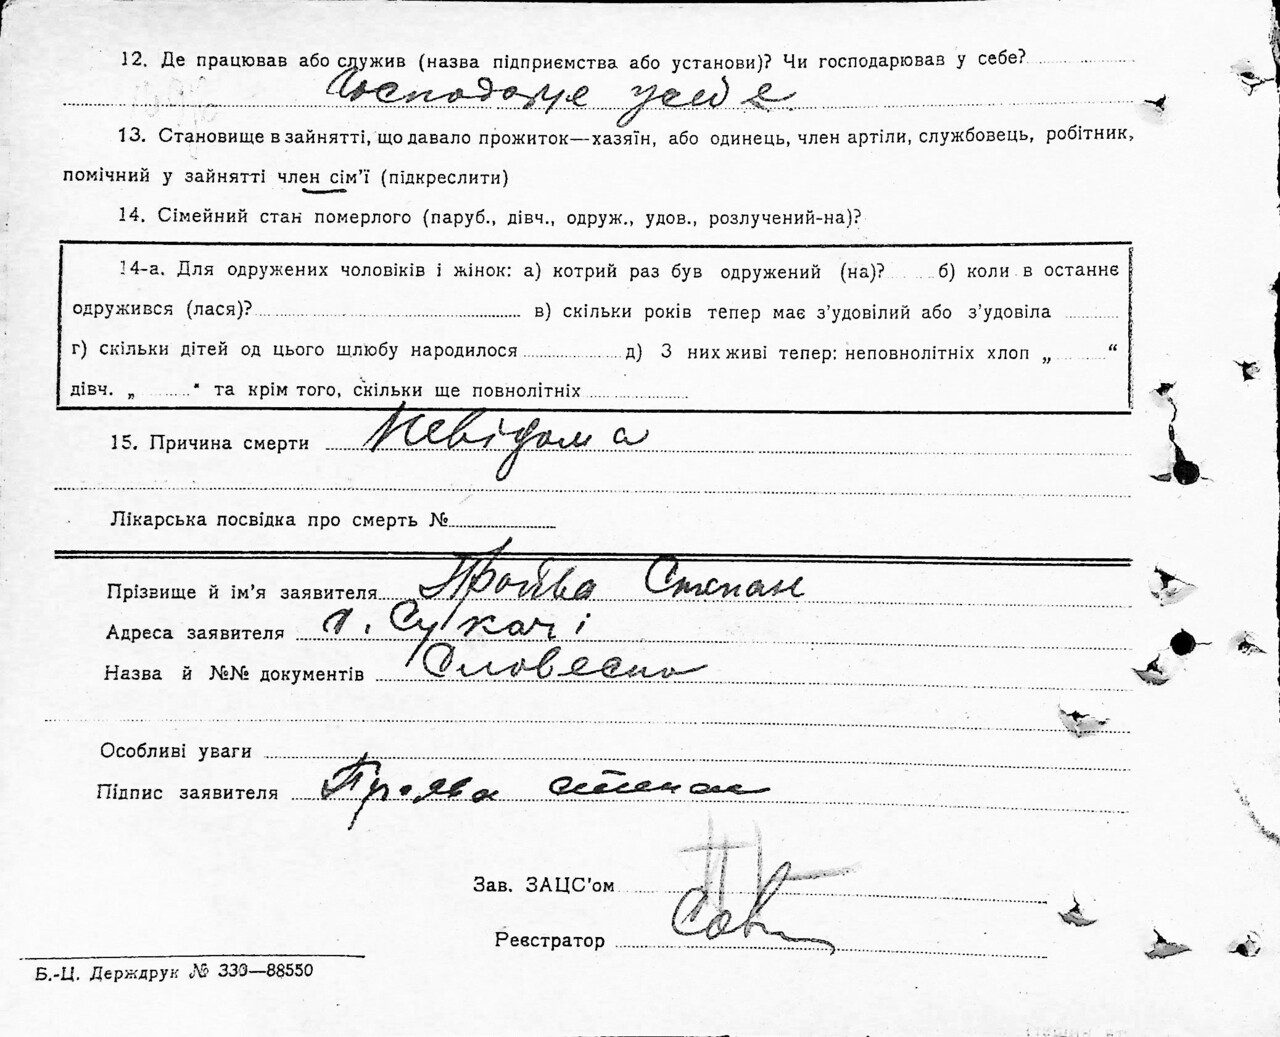 12. Де працював або служив (назва підприємства або установи)? Чи господарював у себе?
Господарює у себе
13. Становище в зайнятті, що давало прожиток—хазяїн, або одинець, член артіли, службовець, робітник,
помічний у зайнятті член сім'ї (підкреслити)
14. Сімейний стан померлого (паруб., дівч., одруж., удов., розлучений-на)?
14-а. Для одружених чоловіків і жінок: а) котрий раз був одружений (на)? б) коли в останнє
одружився (лася)? в) скільки років тепер має з'удовілий або з'удовіла
г) скільки дітей од цього шлюбу народилося д) З них живі тепер: неповнолітніх хлоп „ “
дівч. „ “ та крім того, скільки ще повнолітніх
15. Причина смерти Невідома
Лікарська посвідка про смерть №
Прізвище й ім'я заявителя Степан
Адреса заявителя с. Сукачі
Назва й №№ документів Словесно
Особливі уваги
Підпис заявителя степан
Зав. ЗАЦС'ом
Реєстратор
Б.-Ц. Держдрук № 330—88550